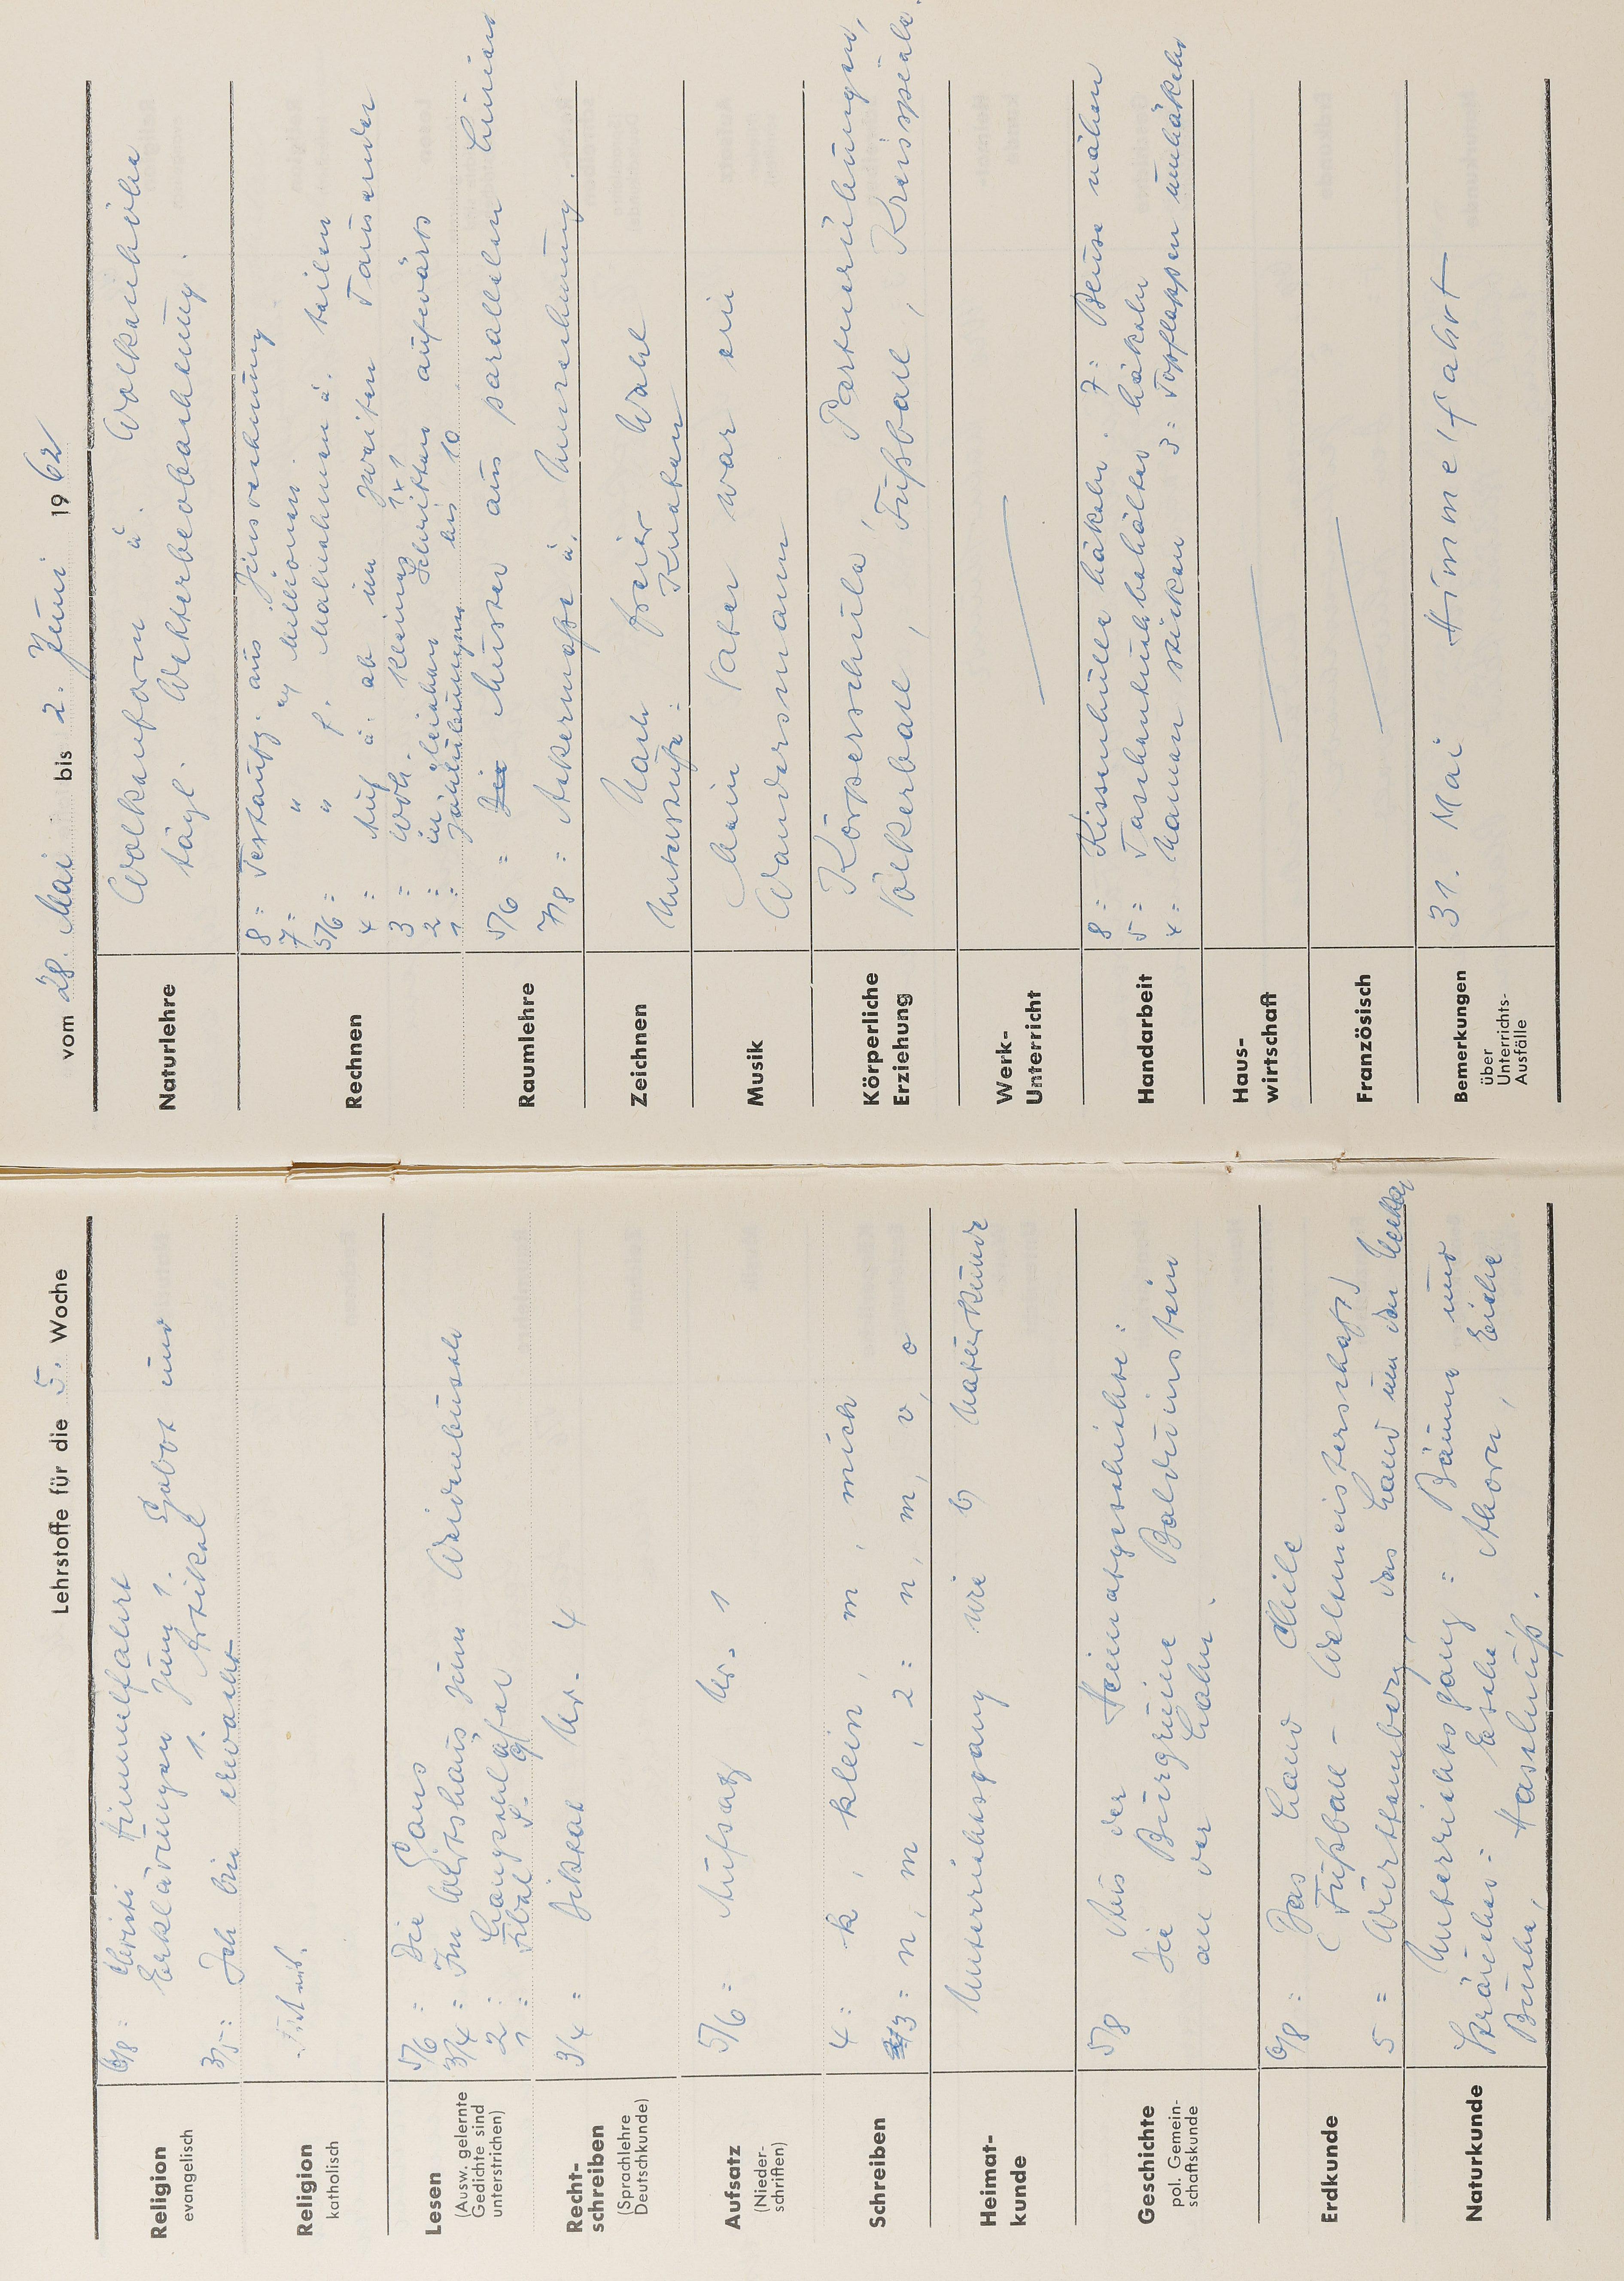 Lehrstoffe für die 5. Woche
Religion
evangelisch
6/8 = Christi Himmelfahrt
Erklärungen zum 1. Gebot und
1. Artikel
3/5 = Ich bin erwacht
Religion
katholisch
Lesen
(Ausw. gelernte
Gedichte sind
unterstrichen)
5/6 = Die Gans
3/4 = Im Wirtshaus zum Weidenbusch
2 =
1 = Fibel
Recht-
schreiben
(Sprachlehre
Deutschkunde)
3/4 = Diktat Nr. 4
Aufsatz
(Nieder-
schriften)
5/6 = Aufsatz Nr. 1
Schreiben
4 = k, klein, m, mich
3 = n, m, 2 = n, m, v, o
Heimat-
kunde
Unterrichtsgang wie b) Naturkunde
Geschichte
pol. Gemein-
schaftskunde
5/8 Aus der Heimatgeschichte:
Die Burgruine Balduinstein
an der Lahn.
Erdkunde
6/8 = Das Land Chile
(Fußball - Weltmeisterschaft)
5 = Württemberg, das Land um den Neckar
Naturkunde
Unterrichtsgang = Bäume und
Sträucher = Esche, Ahorn, Eiche
Buche, Haselnuß.
vom 28. Mai bis 2. Juni 1962
Naturlehre
Wolkenform u. Wolkenhöhe
tägl. Wetterbeobachtung.
Rechnen
8 = Textaufg. aus Zinsrechnung
7 = " Millionen.
5/6 = " f. Malnehmen u. teilen
4 = Auf u. ab im zweiten Tausender
3 = Wdh. kleines 1x1
2 = in gleichen Schritten aufwärts
1 = bis 10
Raumlehre
5/6 = Die Muster aus parallelen Linien
7/8 = Ackermaße u. Umrechnung.
Zeichnen
Nach freier Wahl
Unterstufe: Kneten
Musik
Mein Vater war ein
Wandersmann
Körperliche
Erziehung
Körperschule, Partnerübungen,
Völkerball, Fußball, Kreisspiele.
Werk-
Unterricht
Handarbeit
8 = Kissenhülle häkeln. 7 = Bluse nähen
5 = Taschentuchbehälter häkeln
4 = Namen sticken 3 = Topflappen umhäkeln
Haus-
wirtschaft
Französisch
Bemerkungen
über
Unterrichts-
Ausfälle
31. Mai Himmelfahrt